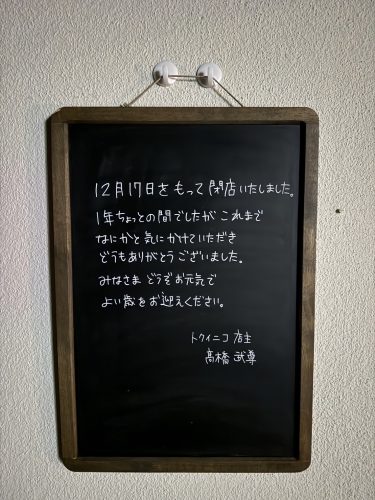 12月17日をもって閉店いたしました。
1年ちょっとの間でしたが これまで
なにかと気にかけていただき
どうもありがとうございました。
みなさま どうぞお元気で
よい歳をお迎えください。
トクイニコ 店主
髙橋 武尊